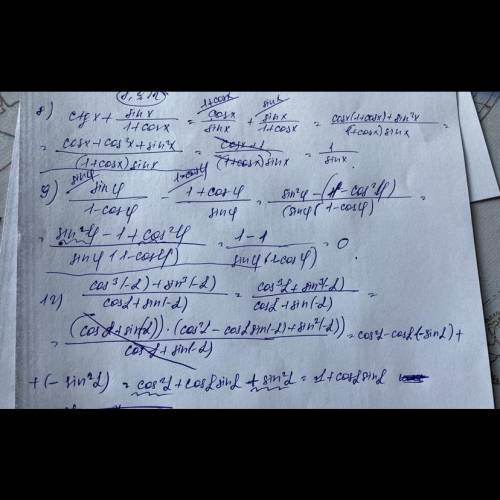 8) ctg x + sin x / 1+cos x = cos x / sin x + sin x / 1+cos x = cos x(1+cos x)+sin²x / (1+cos x) sin x =
= cos x + cos²x + sin²x / (1+cos x) sin x = cos x + 1 / (1+cos x) sin x = 1 / sin x.
9) sin φ / 1-cos φ - 1+cos φ / sin φ = sin²φ - (1²-cos²φ) / (sin φ (1-cos φ) =
= sin²φ - 1 + cos²φ / sin φ (1-cos φ) = 1-1 / sin φ (1-cos φ) = 0.
12) cos³(-α)+sin³(-α) / cos α + sin(-α) = cos³α + sin³(-α) / cos α + sin(-α) =
= (cos α + sin(-α))·(cos²α - cos α sin(-α) + sin²(-α)) / cos α + sin(-α) = cos²α - cos α(-sin α) +
+ (- sin²α) = cos²α + cos α sin α + sin²α = 1 + cos α sin α